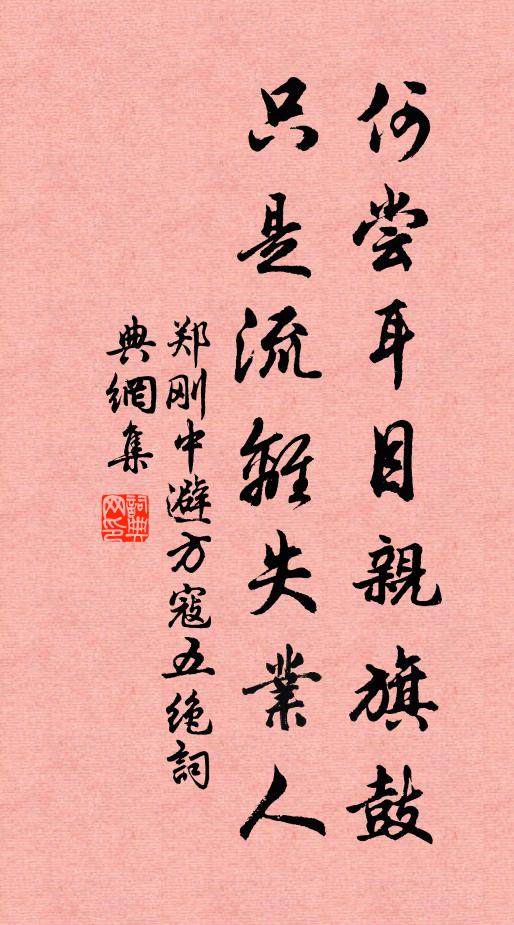 何尝耳目親旗鼓
只是流離失業人
郑刚中避方寇五绝詞
典網集
詞典網印